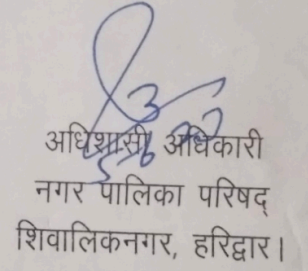 अधिशासी अधिकारी
नगर पालिका परिषद्
शिवालिकनगर, हरिद्वार।